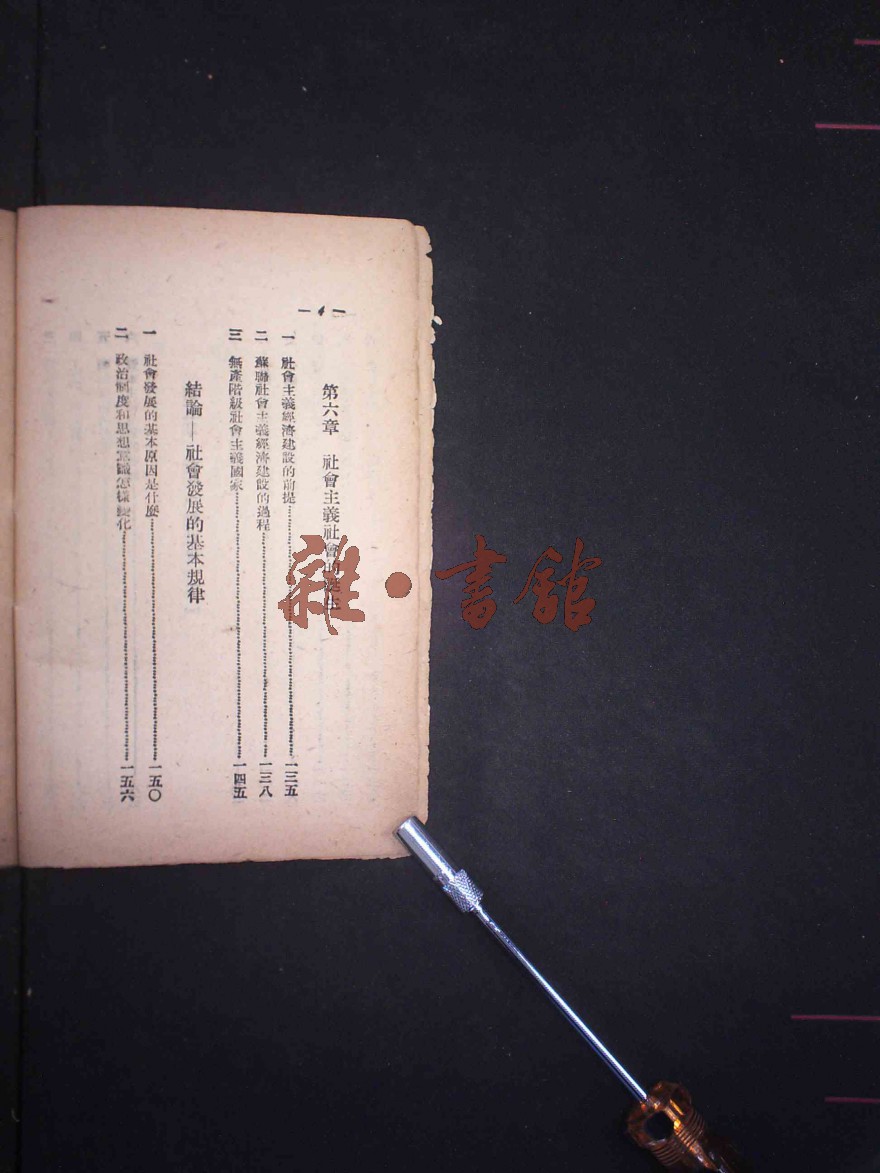 — 4 —
第六章　社會主義社會的誕生
一　社會主義經濟建設的前提…………一三五
二　蘇聯社會主義經濟建設的過程…………一三八
三　無產階級社會主義國家…………一四五
結論——社會發展的基本規律
一　社會發展的基本原因是什麼…………一五〇
二　政治制度和思想意識怎樣變化…………一五六
雜·書館